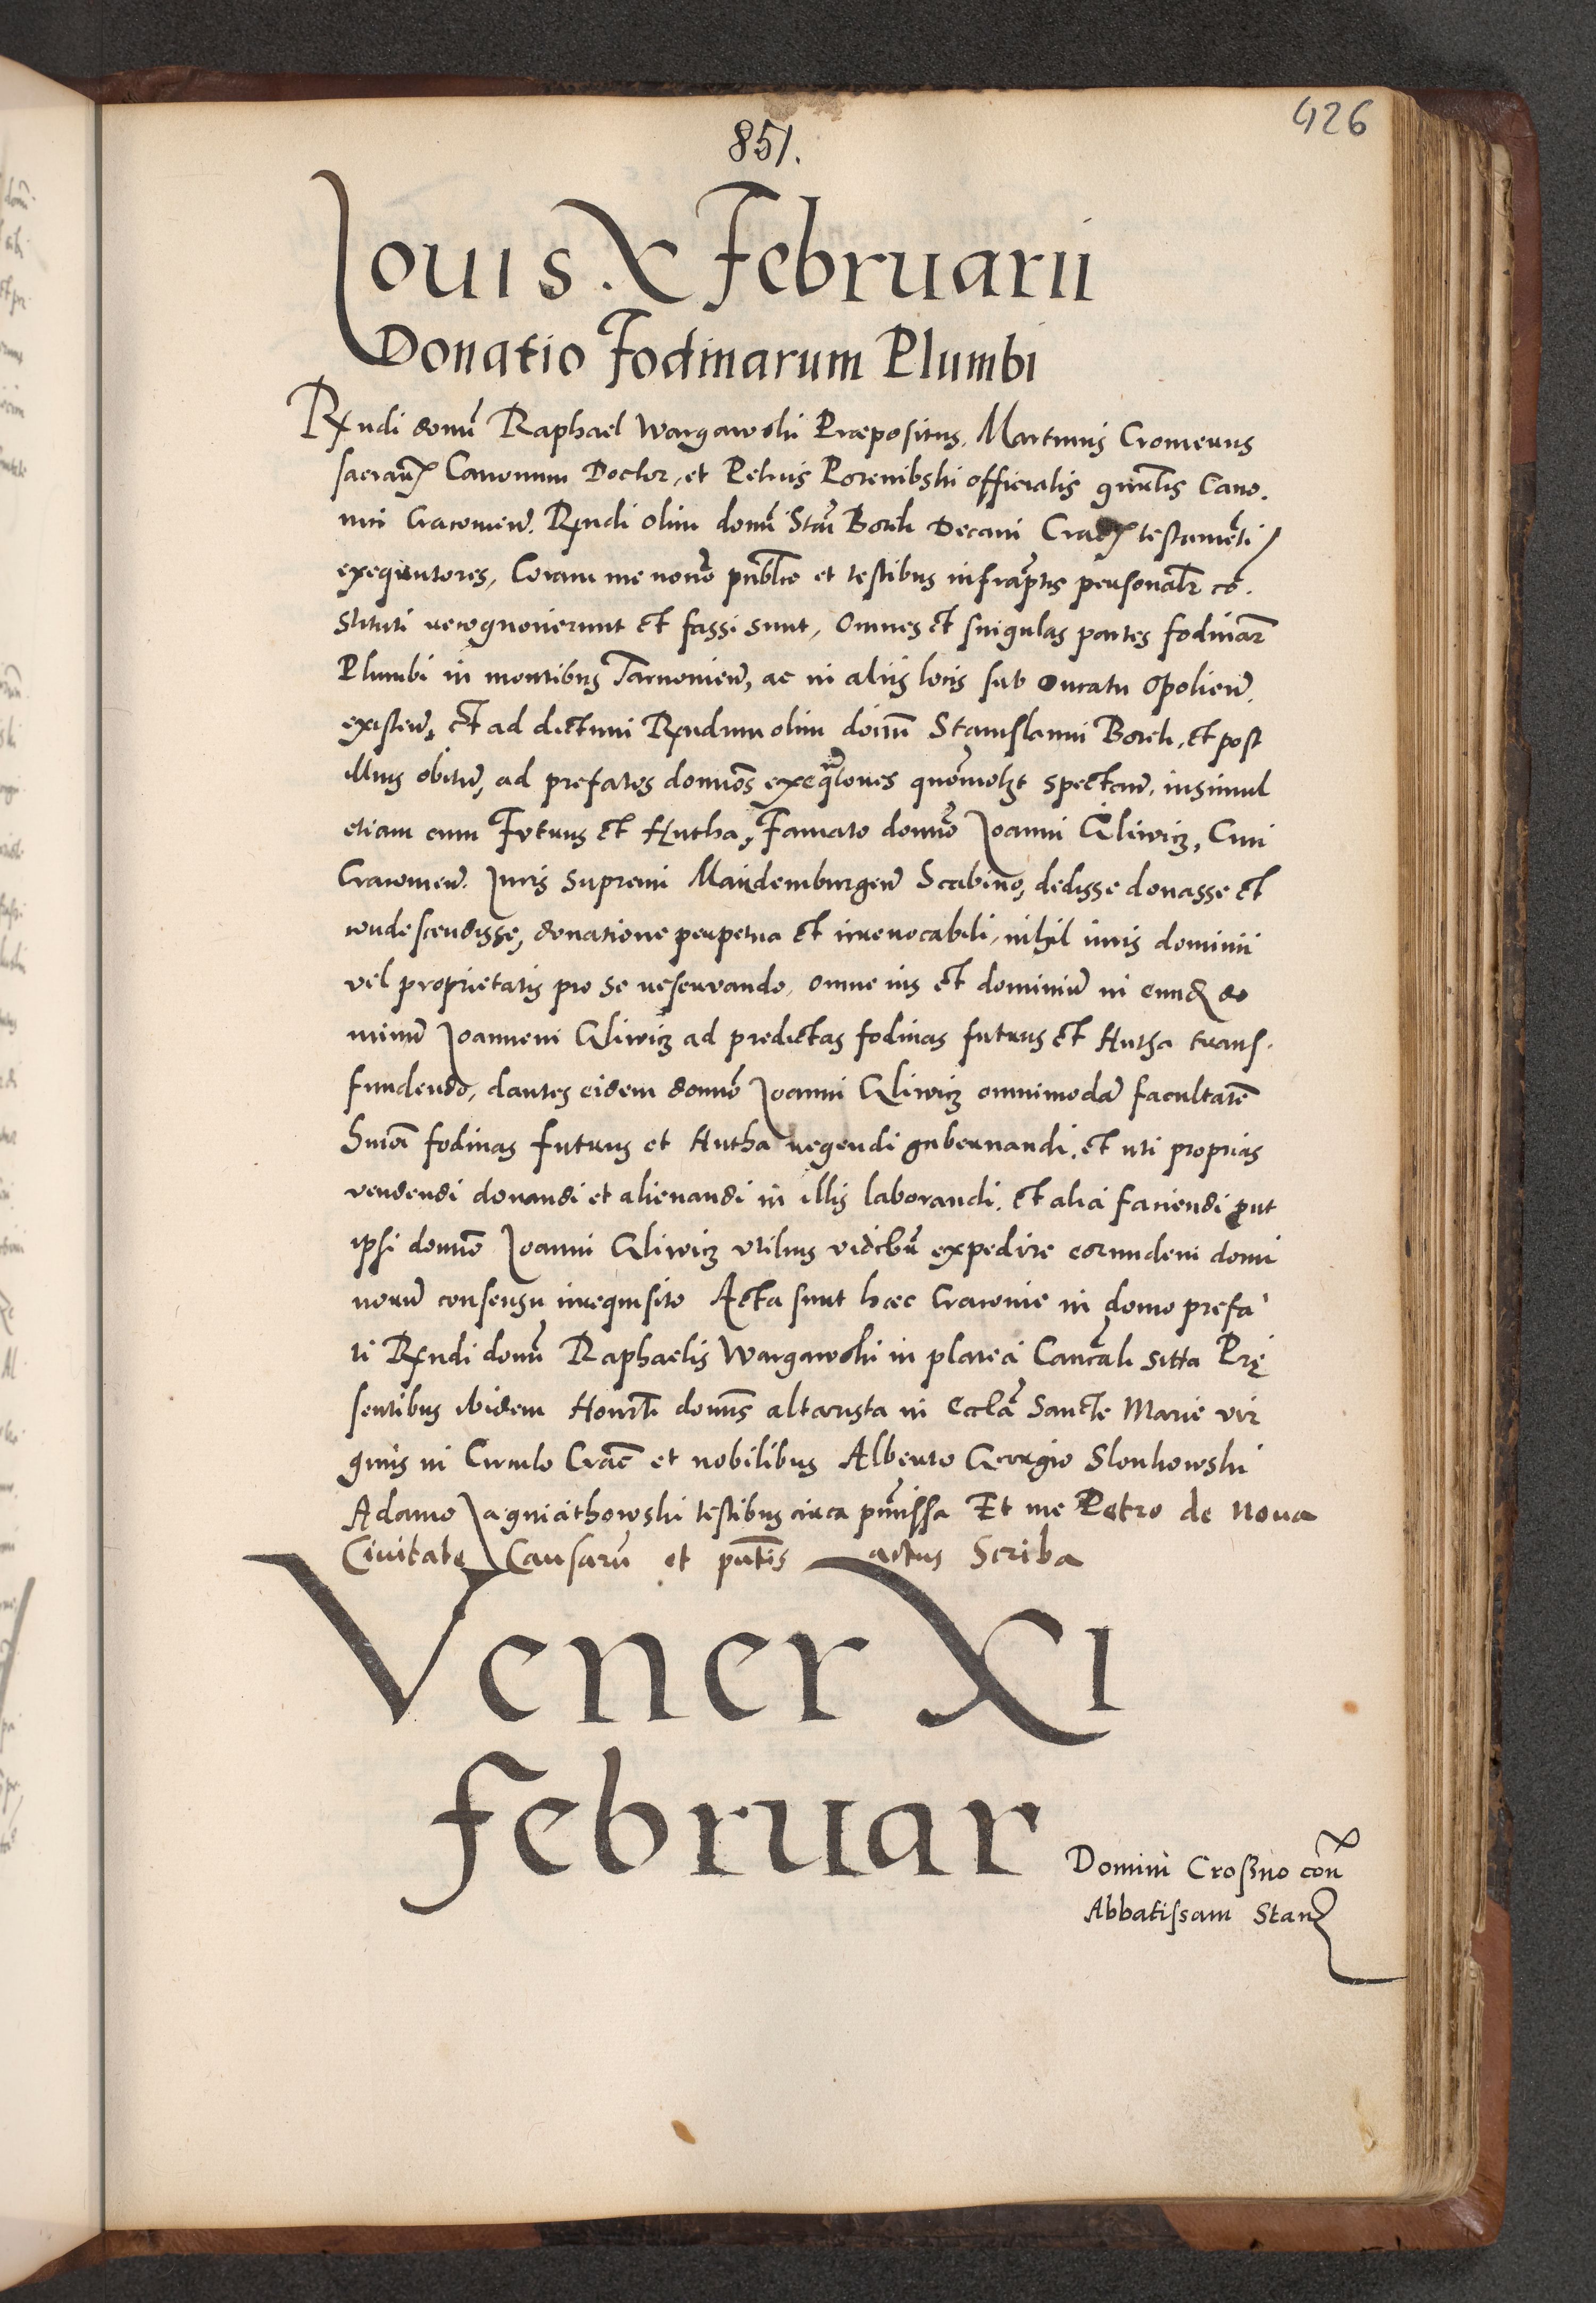 426
851.
Iouis X Februarii
Donatio Fodinarum Plumbi
Rndi domī Raphael Wargawski Præpositus, Martinus Cromerus
sacraꝝ Canonum Doctor, et Petrus Porembski officialis gnrlis Cano.
nici Cracovień. Rndi olim domī Stāi Borek Decani Cracꝝ testamēti
exequutores, Coram me notō publico et testibus infraptis personalr cō.
stituti recognoverunt et fassi sunt, Omnes et singulas partes fodinar
Plumbi in montibus Tarnovień, ac in aliis locis sub Ducatu Opolień.
existeñ, et ad dictum Rndum olim doīm Stanislaum Borek, et post
illius obitū, ad prefatos domnos exeqtores quomolzt spectañ. insimul
etiam cum Futrus et Hutha, Famato domno Joanni Gliwicz, Civi
Cracovień. Juris Supremi Maideburgeñ Scabino, dedisse donasse et
condescendisse, donatione perpetua et irrevocabili, nihil iuris dominii
vel proprietatis pro se reservando, omne ius et dominiū in eundꝫ do
minū Joannem Gliwicz ad predictas fodinas futrus et Hutha trans.
fundendo, dantes eidem domno Joanni Gliwicz omnimodā facultatē
hmōi fodinas futrus et Hutha regendi gubernandi, et uti proprias
vendendi donandi et alienandi in illis laborandi, et alia faciendi ꝓut
ipsi domno Joanni Gliwicz utilius videbīt expedire eorundem domi
norū consensu irrequisito Acta sunt hæc Cracovie in domo prefa
ti Rndi domī Raphaelis Wargawski in platea Canōcali sitta Prę
sentibus ibidem Honrli domns altarista in Ecclā Sancte Marie vir
ginis in Circulo Crac et nobilibus Alberto Georgio Slonkowski
Adamo Jagniathowski testibus circa pmissa Et me Petro de Nova
Civitate Causarū et pntis actus Scriba
Vener XI
februar
Domini Croſzno con
Abbatissam Stanꝫ